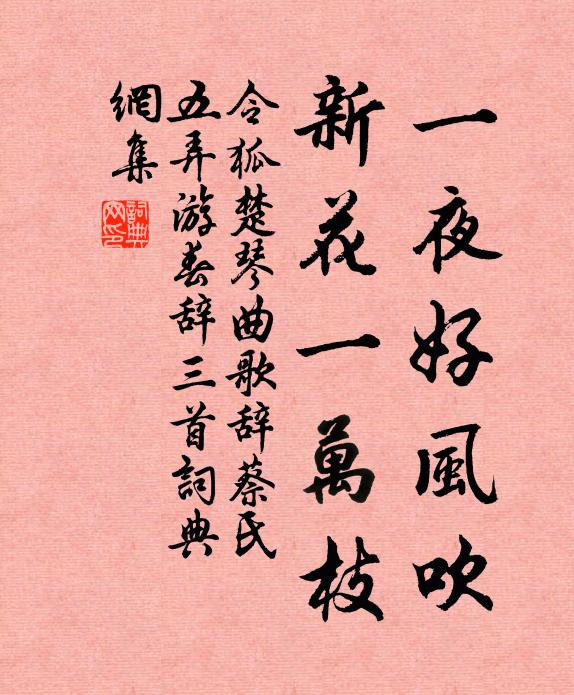 一夜好風吹
新花一萬枝
令狐楚琴曲歌辞蔡氏
五弄游春辞三首詞典
網集
詞典
网印